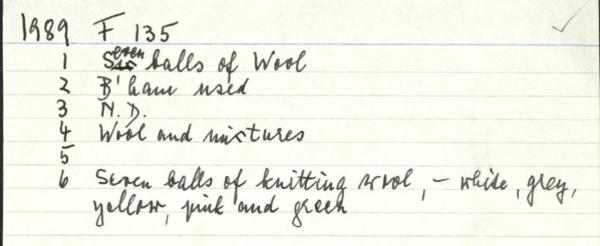 1989 F 135
1 Seven balls of Wool
2 B'ham used
3 N.D.
4 Wool and mixtures
5
6 Seven balls of knitting wool, – white, grey,
yellow, pink and green